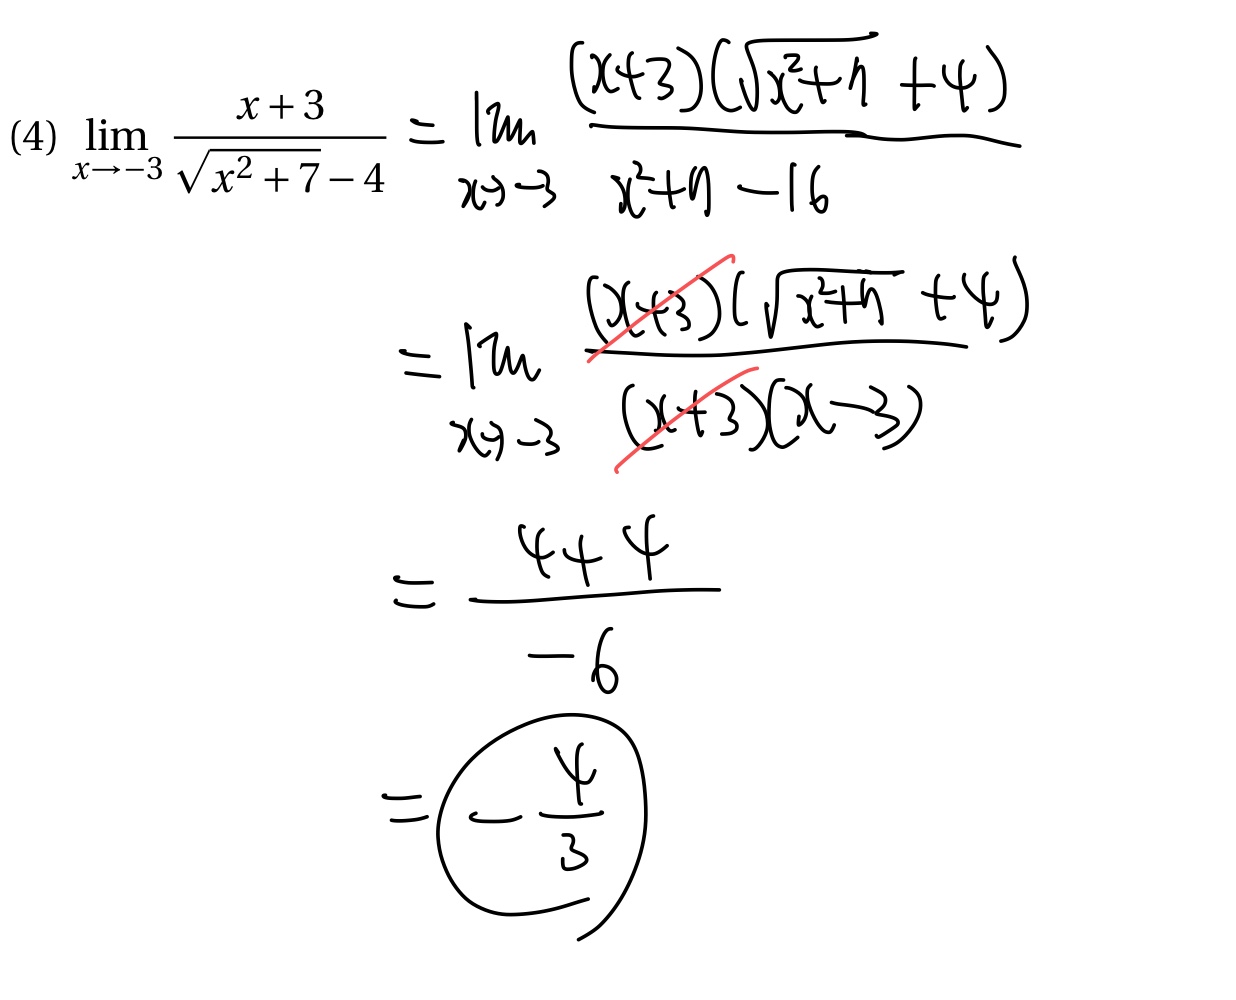 (4) lim_{x→−3} \frac{x+3}{\sqrt{x^2+7}−4} = lim_{x→−3} \frac{(x+3)(\sqrt{x^2+7}+4)}{x^2+7−16}
= lim_{x→−3} \frac{(x+3)(\sqrt{x^2+7}+4)}{(x+3)(x−3)}
= \frac{4+4}{−6}
= −\frac{4}{3}